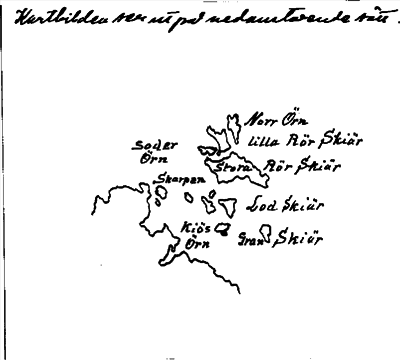 Kartbilden ser ut på nedanstående sätt.
Norr Örn
lilla Rör Skiär
Söder
Örn
Stora Rör Skiär
Skarpen
Lod Skiär
Kiös
Örn
Gran Skiär